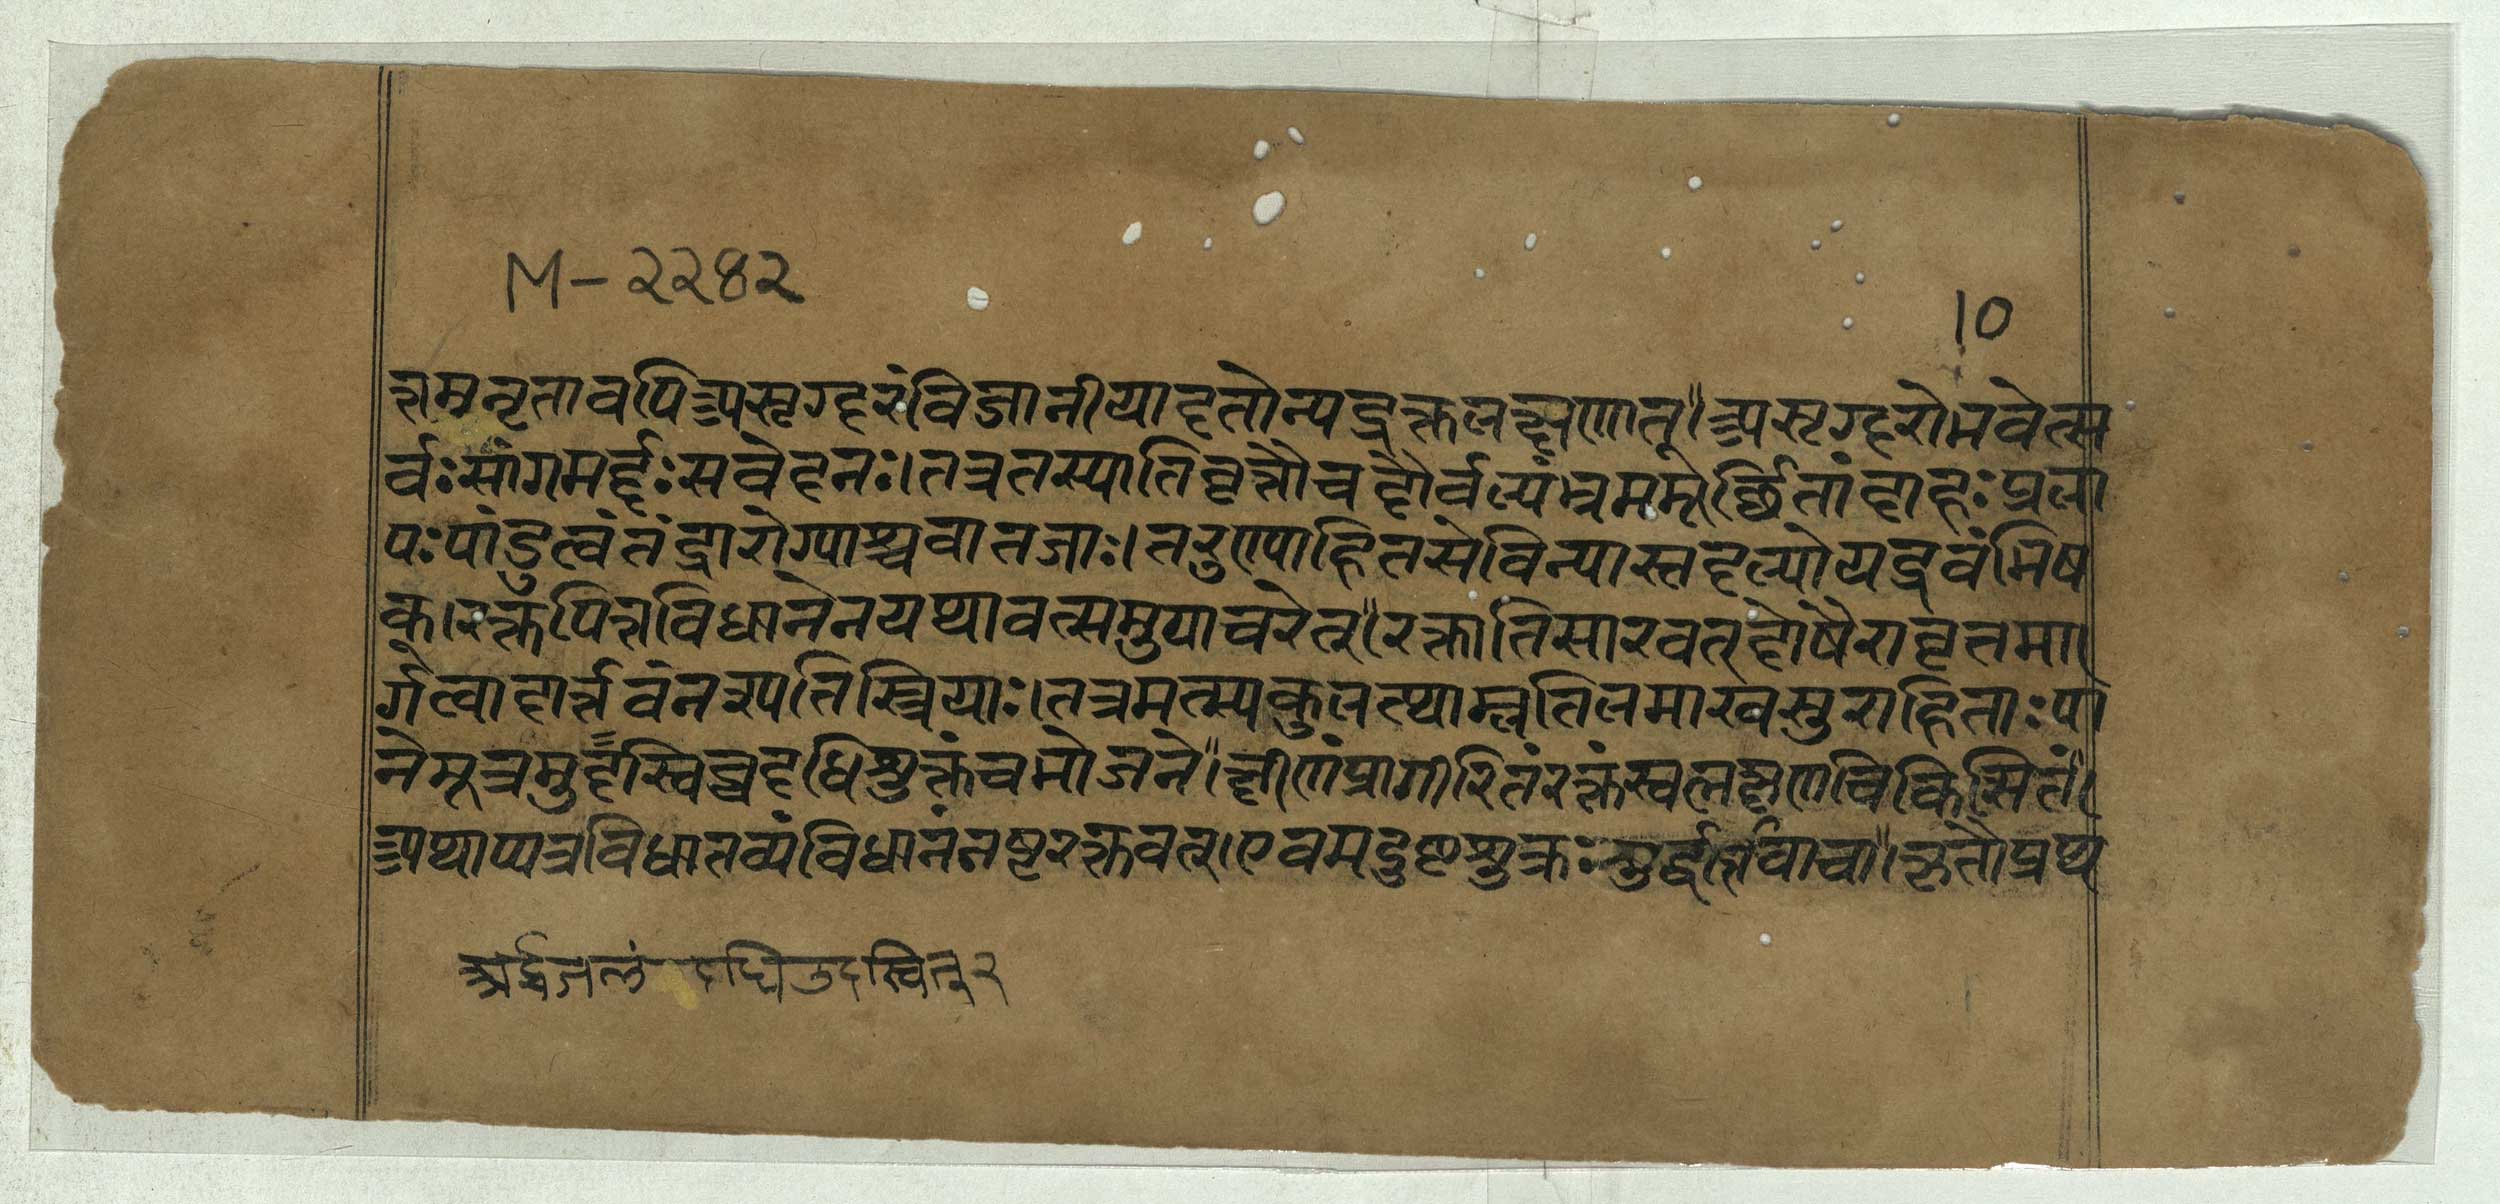 M-२२४२
10
त्तमनृतावपिअसृग्दरंविजानीयादतोन्यद्रक्तलक्षणात्॥असृग्दरोभवेत्स
र्वःसांगमर्द्दःसवेदनः।तत्रतस्यातिवृत्तौचदौर्वल्यंभ्रममूर्छितांदाहःप्रला
पःपांडुत्वंतंद्रारोग्याश्चवातजाः।तरुण्याहितसेविन्यास्तदल्पोयद्रवंभिष
क्।रक्तपित्तविधानेनयथावत्समुपाचरेत्॥रक्तातिसारवत्दोषैरावृतमा
र्गत्वादार्त्तवंनश्यतिस्त्रियाः।तत्रमत्स्यकुलत्थाम्लतिलमाखसुराहिताः।पा
नेमूत्रमुदस्विच्चदधिशुक्तंचभोजने॥क्षीणंप्रागीरितंरक्तंस्वलक्षणचिकित्सितं।
अथाप्यत्रविधातव्यंविधानंनष्टरक्तवत्।एवमदुष्टशुक्रःशुद्धार्त्तवावा॥ऋतौप्रथ
अर्द्धजलं दधिउदस्वित् २